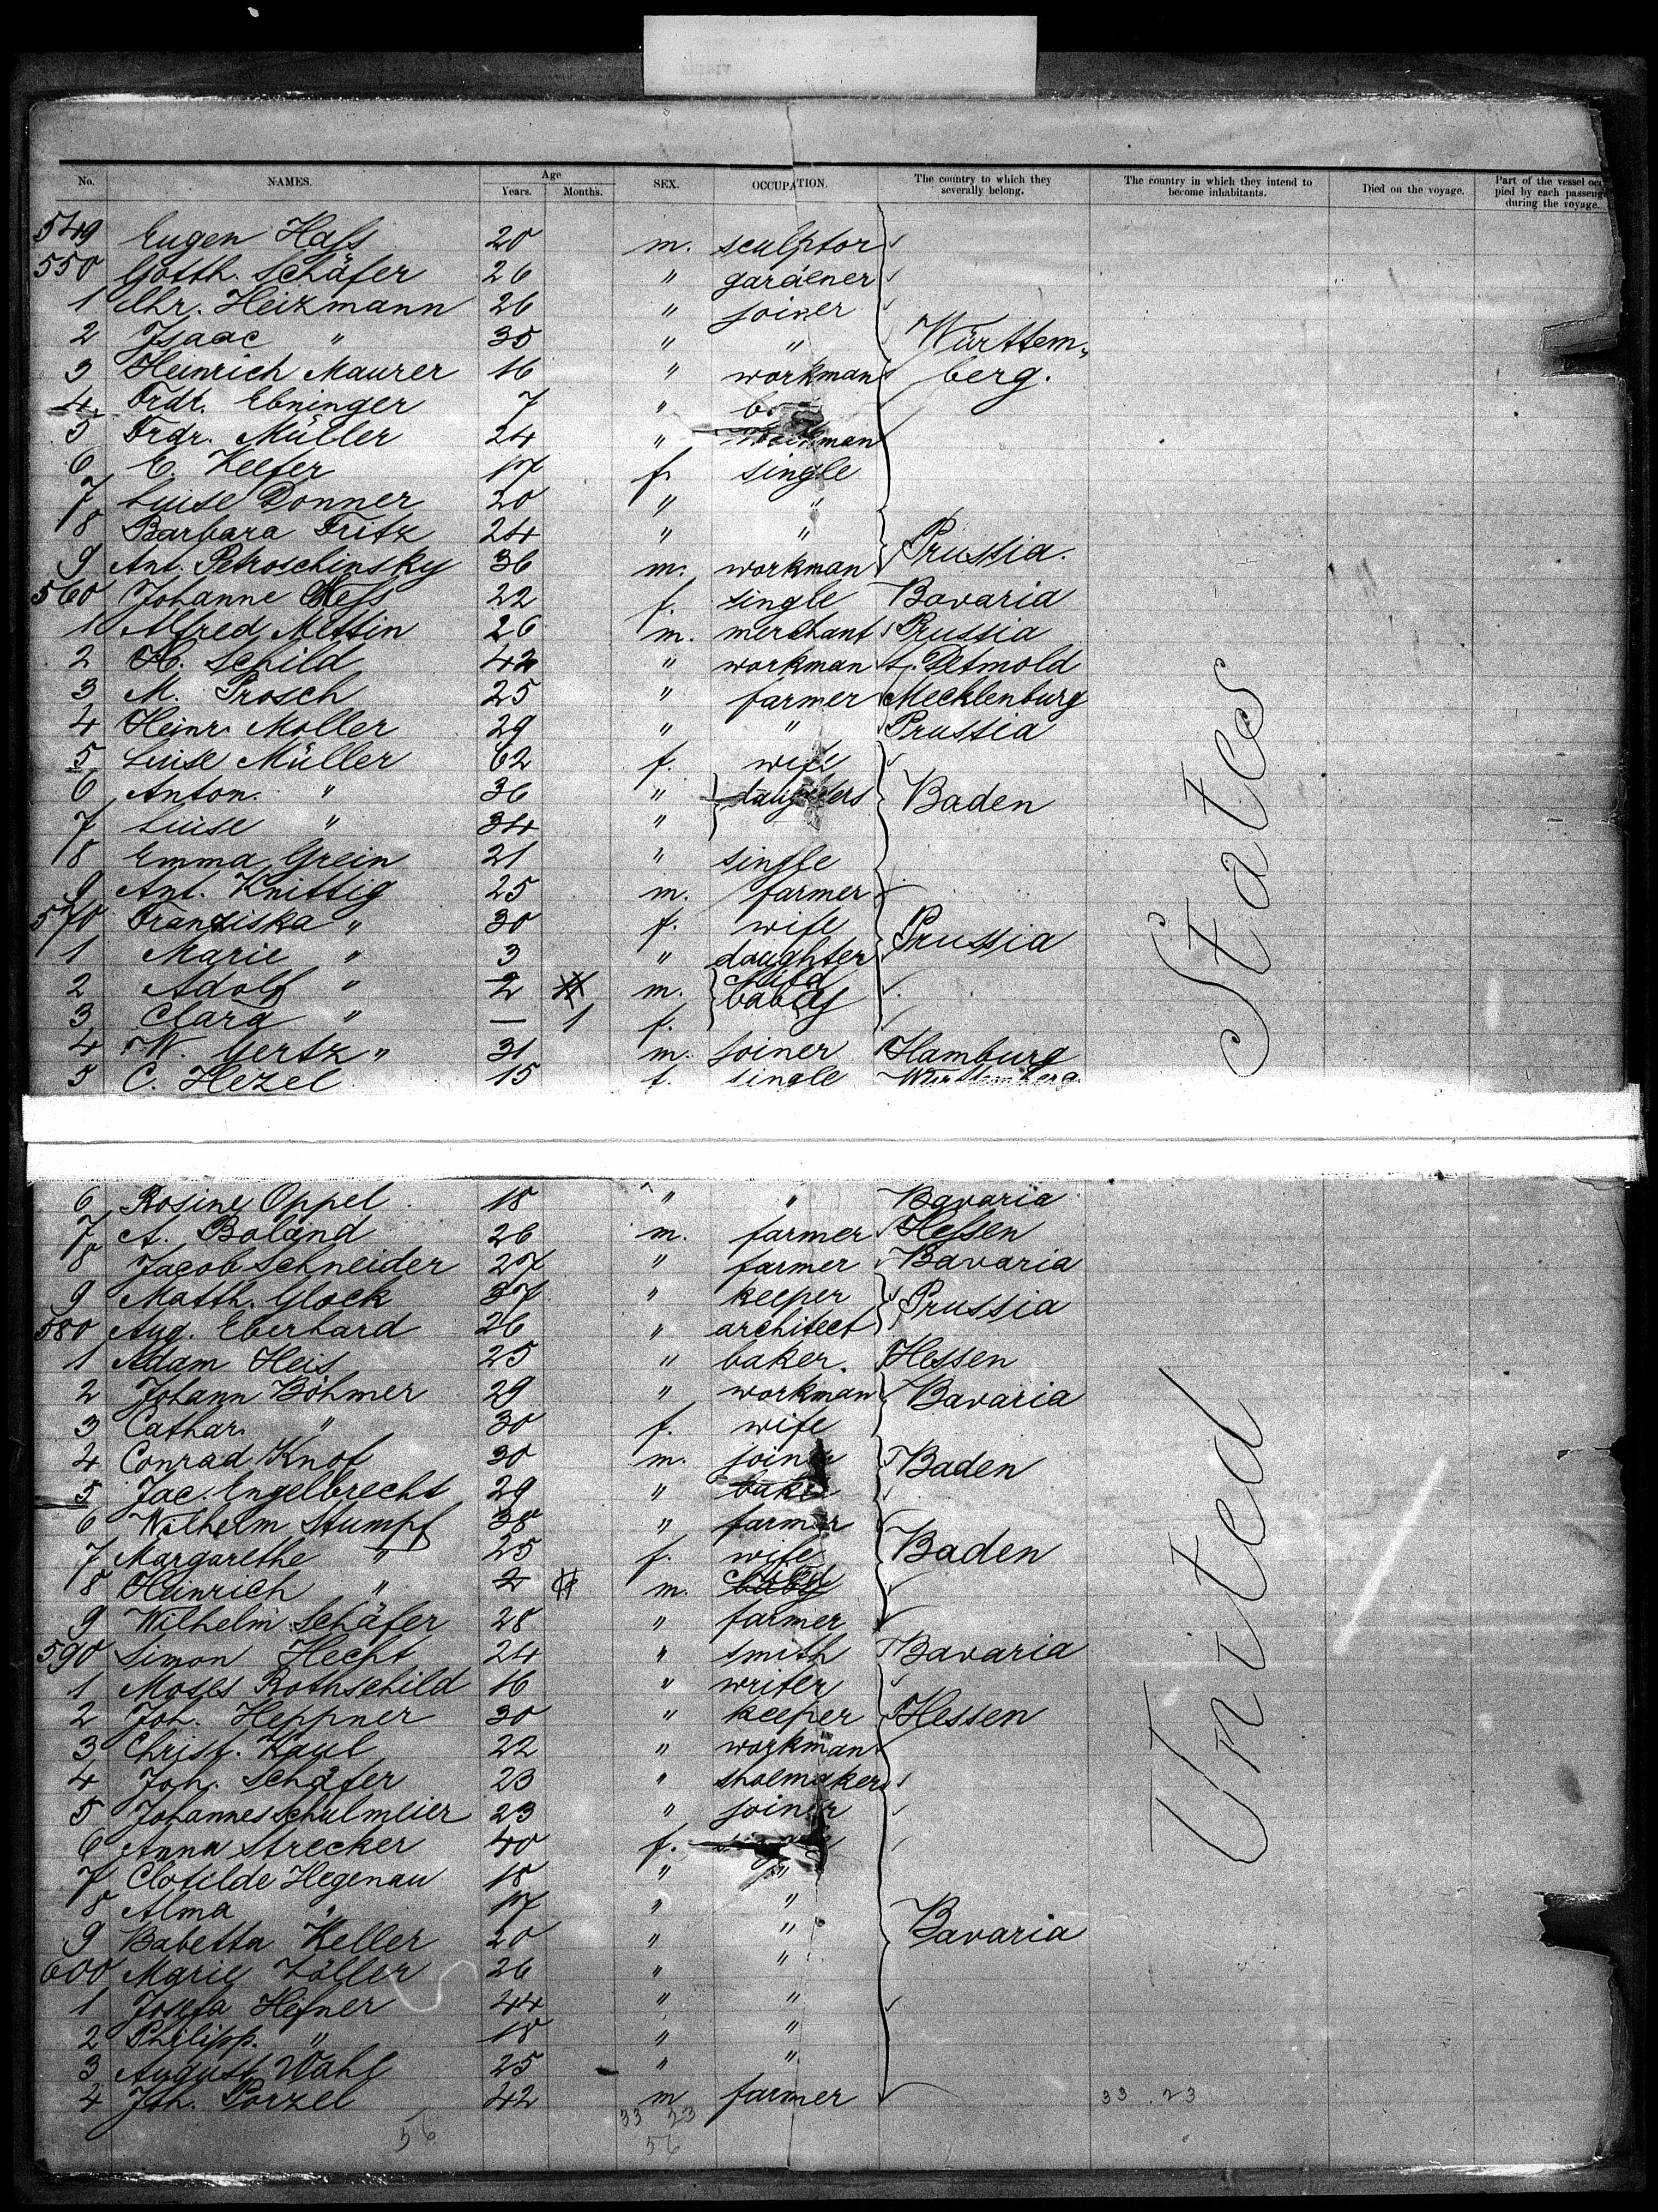 No. NAMES. Age Years. Months. SEX. OCCUPATION. The country to which they severally belong. The country in which they intend to become inhabitants. Died on the voyage. Part of the vessel occupied by each passenger during the voyage.
549 Eugen Hass 20 m. sculptor
550 Gotth. Schäfer 26 " gardener
1 Chr. Heizmann 26 " joiner
2 Isaac " 35 " " Württem-
3 Heinrich Maurer 16 " workman berg.
4 Frdr. Ebninger 7 "
5 Frdr. Müller 24 " workman
6 E. Keefer 17 f. single
7 Luise Donner 20 " "
8 Barbara Fritz 24 " "
9 Ant. Petroschinsky 36 m. workman Prussia.
560 Johanne Hess 22 f. single Bavaria
1 Alfred Mettin 26 m. merchant Prussia
2 H. Schild 42 " workman L. Detmold
3 M. Prosch 25 " farmer Mecklenburg
4 Heinr. Moller 29 " " Prussia
5 Luise Müller 62 f. wife
6 Anton. " 36 " daughters Baden
7 Luise " 34 "
8 Emma Grein 21 " single
9 Ant. Knittig 25 m. farmer
570 Franziska " 30 f. wife Prussia
1 Marie " 3 " daughter
2 Adolf " 2 m. child
3 Clara " — 1 f. baby
4 W. Gertz " 31 m. joiner Hamburg
5 C. Hezel 15 f. single Württemberg.
6 Rosine Oppel 18 " " Bavaria
7 A. Boland 26 m. farmer Hessen
8 Jacob Schneider 27 " farmer Bavaria
9 Matth. Glock 37 " keeper Prussia
580 Aug. Eberhard 26 " architect
1 Adam Heis 25 " baker. Hessen
2 Johann Böhmer 29 " workman Bavaria
3 Cathar. " 30 f. wife
4 Conrad Knof 30 m. joiner Baden
5 Jac. Engelbrecht 29 " baker
6 Wilhelm Stumpf 38 " farmer
7 Margarethe " 25 f. wife Baden
8 Heinrich " 2 m. child
9 Wilhelm Schäfer 28 " farmer
590 Simon Hecht 24 " smith Bavaria
1 Moses Rothschild 16 " writer
2 Joh. Heppner 30 " keeper Hessen
3 Christ. Kaul 22 " workman
4 Joh. Schäfer 23 " shoemaker
5 Johannes Schulmeier 23 " joiner
6 Anna Strecker 40 f.
7 Clotilde Hegenau 18 " "
8 Alma " 17 " "
9 Babetta Keller 20 " " Bavaria
600 Marie Zöller 26 " "
1 Josefa Hefner 44 " "
2 Philipp. " 18 " "
3 August Wahl 25 " "
4 Joh. Porzel 42 m farmer
United States
33 23
56
33 23
56